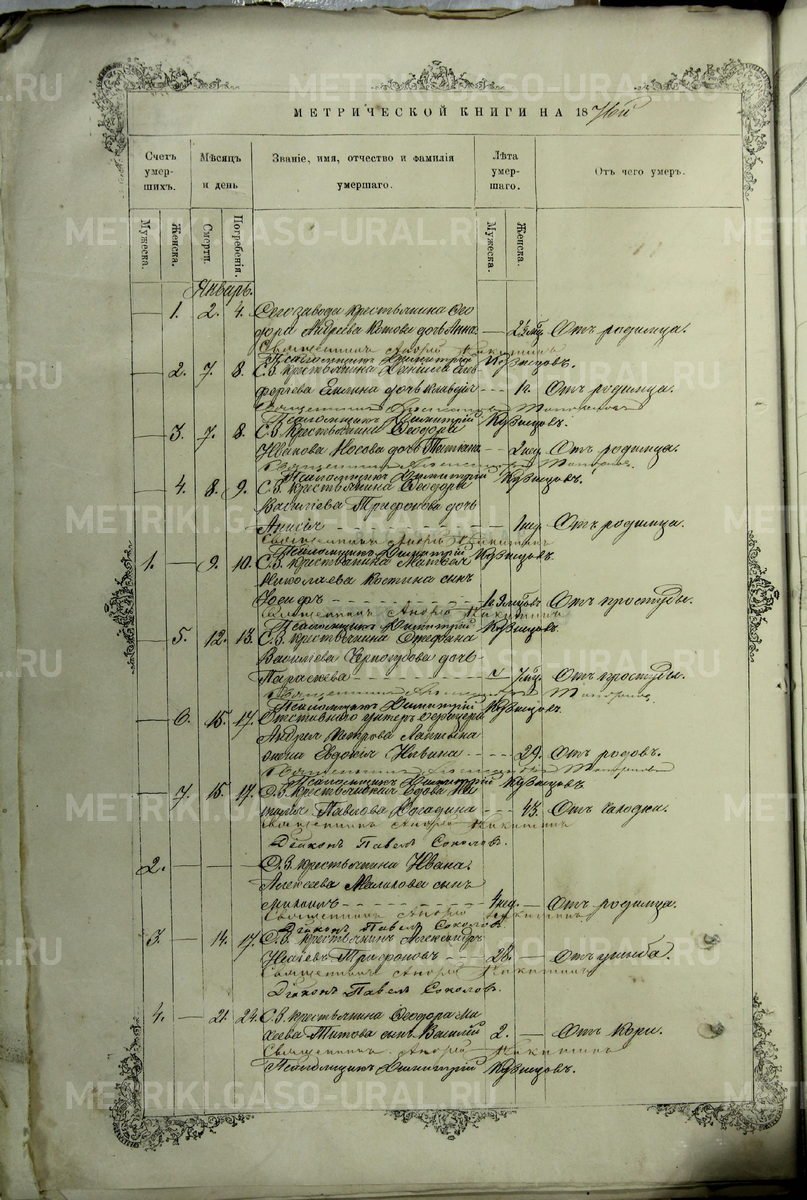 МЕТРИЧЕСКОЙ КНИГИ НА 1876й
Счетъ умершихъ.
Мѣсяцъ и день
Званіе, имя, отчество и фамилія умершаго.
Лѣта умершаго.
Отъ чего умеръ.
Мужеска.
Женска.
Смерти.
Погребенія.
Мужеска.
Женска.
Январь.
— 1. 2. 4. Сего завода крестьянина Ѳео
дора Андреева дочь Анна — Отъ родимца.
Священникъ Андрей Никитинъ
Псаломщикъ Димитрій Кузнецовъ.
— 2. 7. 8. С.З. крестьянина
дочь Клавдія — Отъ родимца.
Священникъ Александръ
Псаломщикъ Димитрій Кузнецовъ.
— 3. 7. 8. С.З. крестьянина Ѳеодора
Иванова Носова дочь Татіана — 2 нед. Отъ родимца.
Священникъ Александръ
Псаломщикъ Димитрій Кузнецовъ.
— 4. 8. 9. С.З. крестьянина Ѳеодора
Василіева Трифонова дочь
Анисія — 1 нед. Отъ родимца.
Священникъ Андрей Никитинъ
Псаломщикъ Димитрій Кузнецовъ.
1. — 9. 10. С.З. крестьянина Матвея
Николаева Костина сынъ
Іосифъ — Отъ простуды.
Священникъ Андрей Никитинъ
Псаломщикъ Димитрій Кузнецовъ.
— 5. 12. 13. С.З. крестьянина Стефана
Василіева Черногубова дочь
Параскева — Отъ простуды.
Священникъ Александръ
Псаломщикъ Димитрій Кузнецовъ.
— 6. 15. 17. унтеръ
Андрея Петрова
жена Евдокія — 29. Отъ родовъ.
Священникъ Александръ
Псаломщикъ Димитрій Кузнецовъ.
— 7. 15. 17. С.З. крестьянская вдова
Павлова — 43. Отъ чахотки.
Священникъ Андрей Никитинъ
Діаконъ Павелъ Соколовъ.
2. — С.З. крестьянина Ивана
Алексѣева Малахова сынъ
Отъ родимца.
Священникъ Андрей Никитинъ
Діаконъ Павелъ Соколовъ
3. — 14. 17. С.З. крестьянинъ Александръ
Трифоновъ — 28. — Отъ ушиба.
Священникъ Андрей Никитинъ
Діаконъ Павелъ Соколовъ.
4. — 21. 24. С.З. крестьянина Ѳеодора Ми
хеева Титова сынъ Василій 2. — Отъ Кори.
Священникъ Андрей Никитинъ
Псаломщикъ Димитрій Кузнецовъ.
METRIKI.GASO-URAL.RU